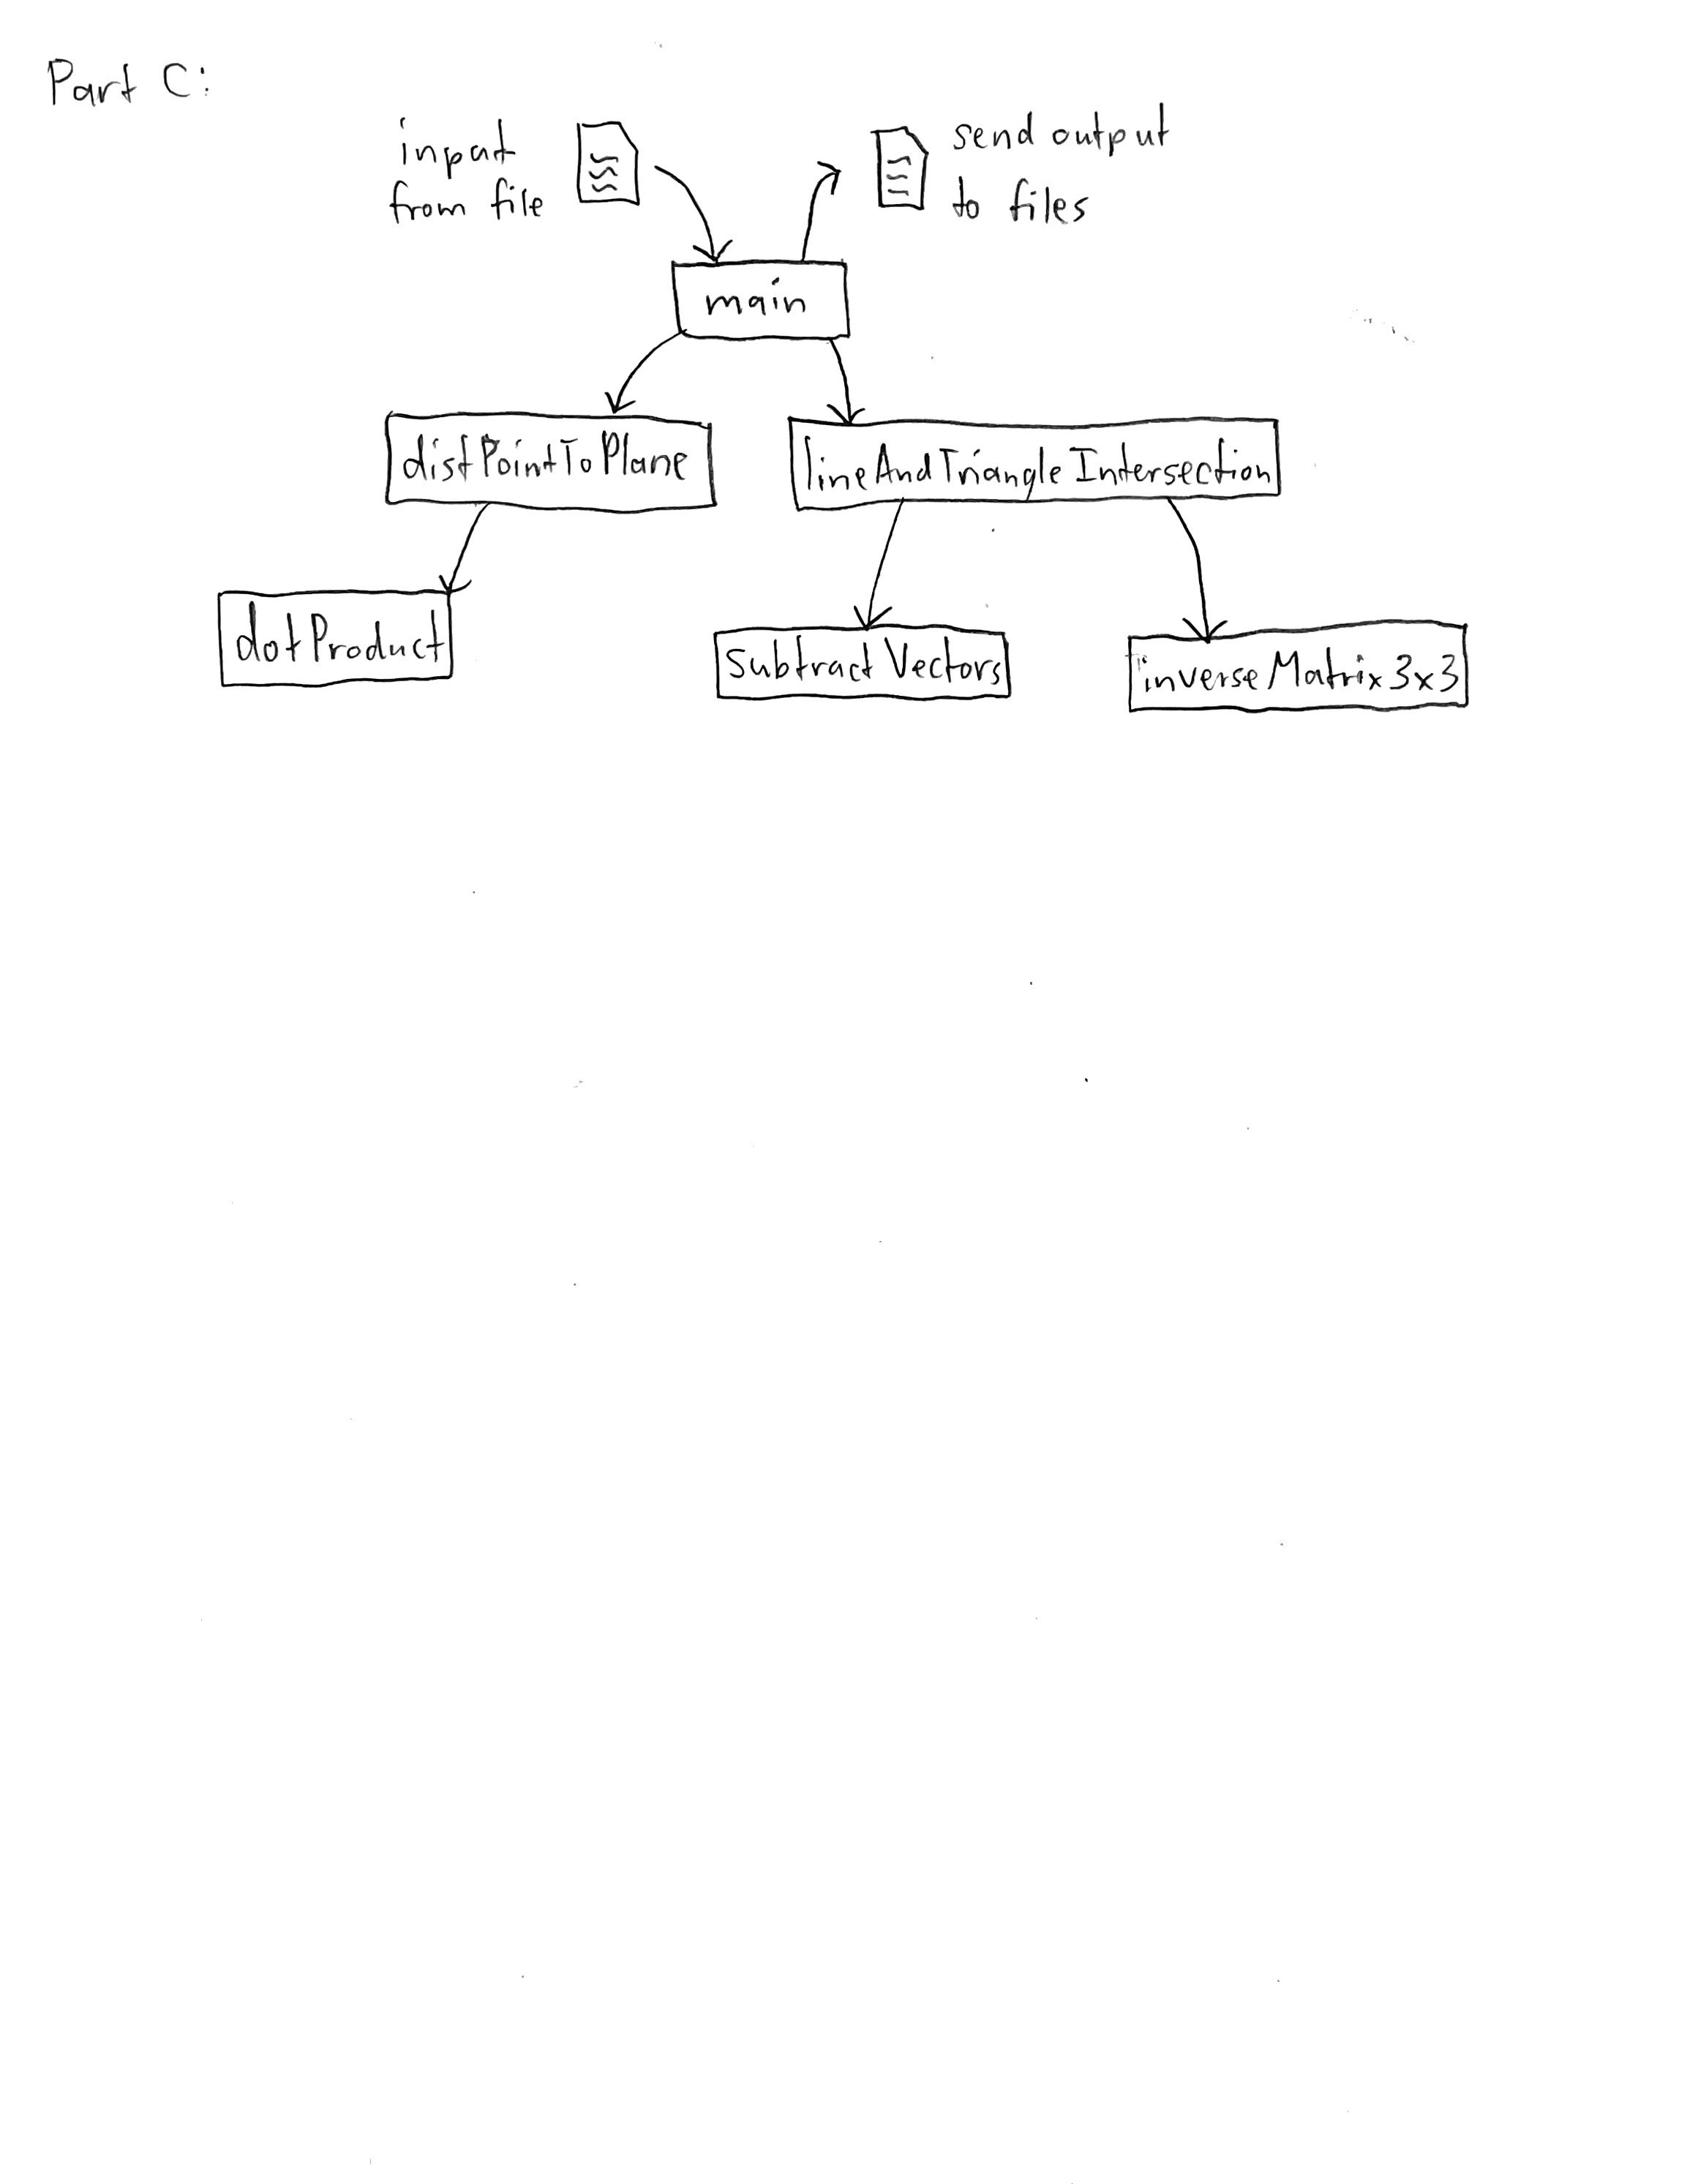 Part C:
input
from file
send output
to files
main
distPointToPlane
lineAndTriangleIntersection
dotProduct
subtractVectors
inverseMatrix3x3